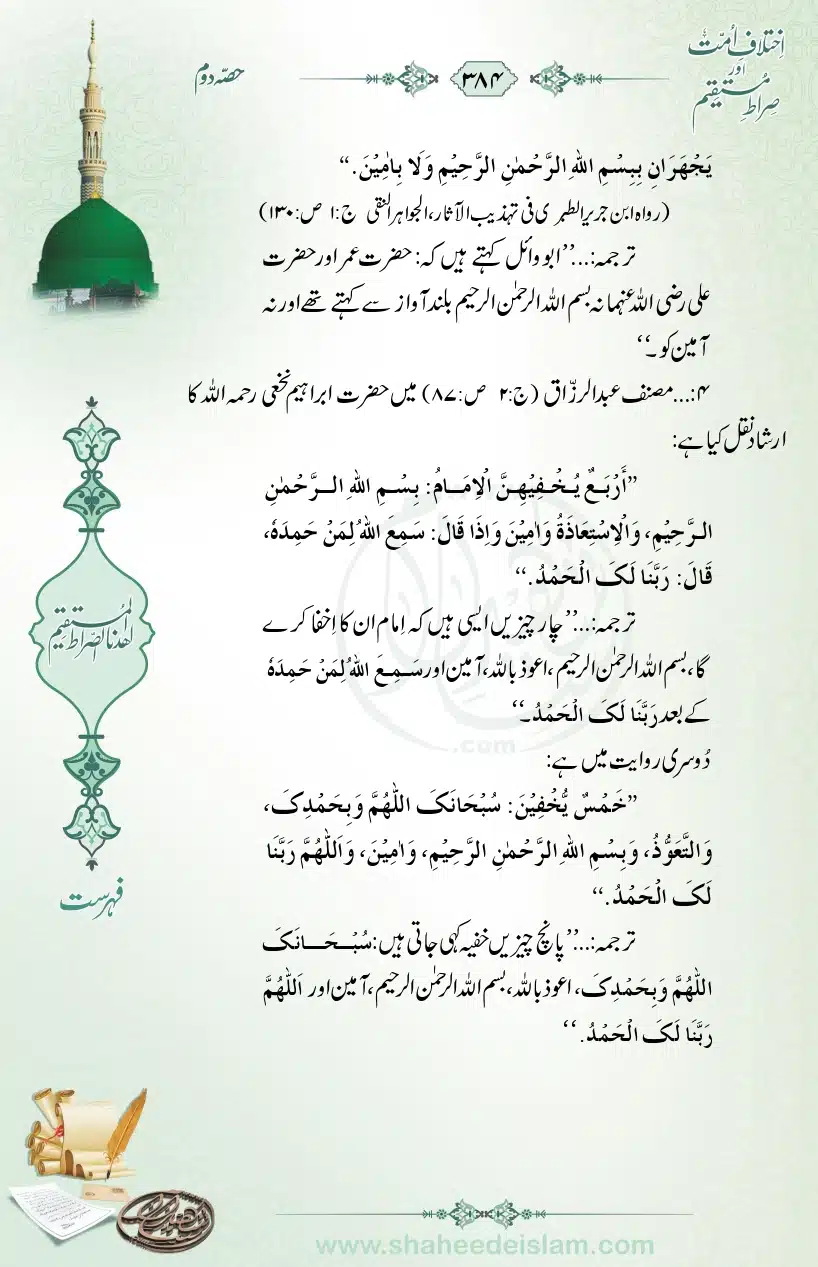 اِختلافِ اُمّت
اور
صِراطِ مُستقیم
۳۸۴
حصّہ دوم
یَجْھَرَانِ بِبِسْمِ اللهِ الرَّحْمٰنِ الرَّحِیْمِ وَلَا بِاٰمِیْنَ.“
(رواہ ابن جریر الطبری فی تہذیب الآثار، الجواہر النقی ج:۱ ص:۱۳۰)
ترجمہ:...’’ابو وائل کہتے ہیں کہ: حضرت عمر اور حضرت
علی رضی اللہ عنہما نہ بسم اللہ الرحمٰن الرحیم بلند آواز سے کہتے تھے اور نہ
آمین کو۔‘‘
۴:...مصنف عبدالرزّاق (ج:۲ ص:۸۷) میں حضرت ابراہیم نخعی رحمہ اللہ کا
ارشاد نقل کیا ہے:
”أَرْبَعٌ یُخْفِیْھِنَّ الْاِمَامُ: بِسْمِ اللهِ الرَّحْمٰنِ
الرَّحِیْمِ، وَالْاِسْتِعَاذَةُ وَاٰمِیْنَ وَاِذَا قَالَ: سَمِعَ اللهُ لِمَنْ حَمِدَهٗ،
قَالَ: رَبَّنَا لَکَ الْحَمْدُ.“
ترجمہ:...’’چار چیزیں ایسی ہیں کہ اِمام ان کا اِخفا کرے
گا، بسم اللہ الرحمٰن الرحیم، اعوذ باللہ، آمین اور سَمِعَ اللهُ لِمَنْ حَمِدَهٗ
کے بعد رَبَّنَا لَکَ الْحَمْدُ۔‘‘
دُوسری روایت میں ہے:
”خَمْسٌ یُّخْفِیْنَ: سُبْحَانَکَ اللّٰھُمَّ وَبِحَمْدِکَ،
وَالتَّعَوُّذُ، وَبِسْمِ اللهِ الرَّحْمٰنِ الرَّحِیْمِ، وَاٰمِیْنَ، وَاَللّٰھُمَّ رَبَّنَا
لَکَ الْحَمْدُ.“
ترجمہ:...’’پانچ چیزیں خفیہ کہی جاتی ہیں: سُبْحَانَکَ
اللّٰھُمَّ وَبِحَمْدِکَ، اعوذ باللہ، بسم اللہ الرحمٰن الرحیم، آمین اور اَللّٰھُمَّ
رَبَّنَا لَکَ الْحَمْدُ.‘‘
اھدنا الصّراط المستقیم
فہرست
.com
www.shaheedeislam.com